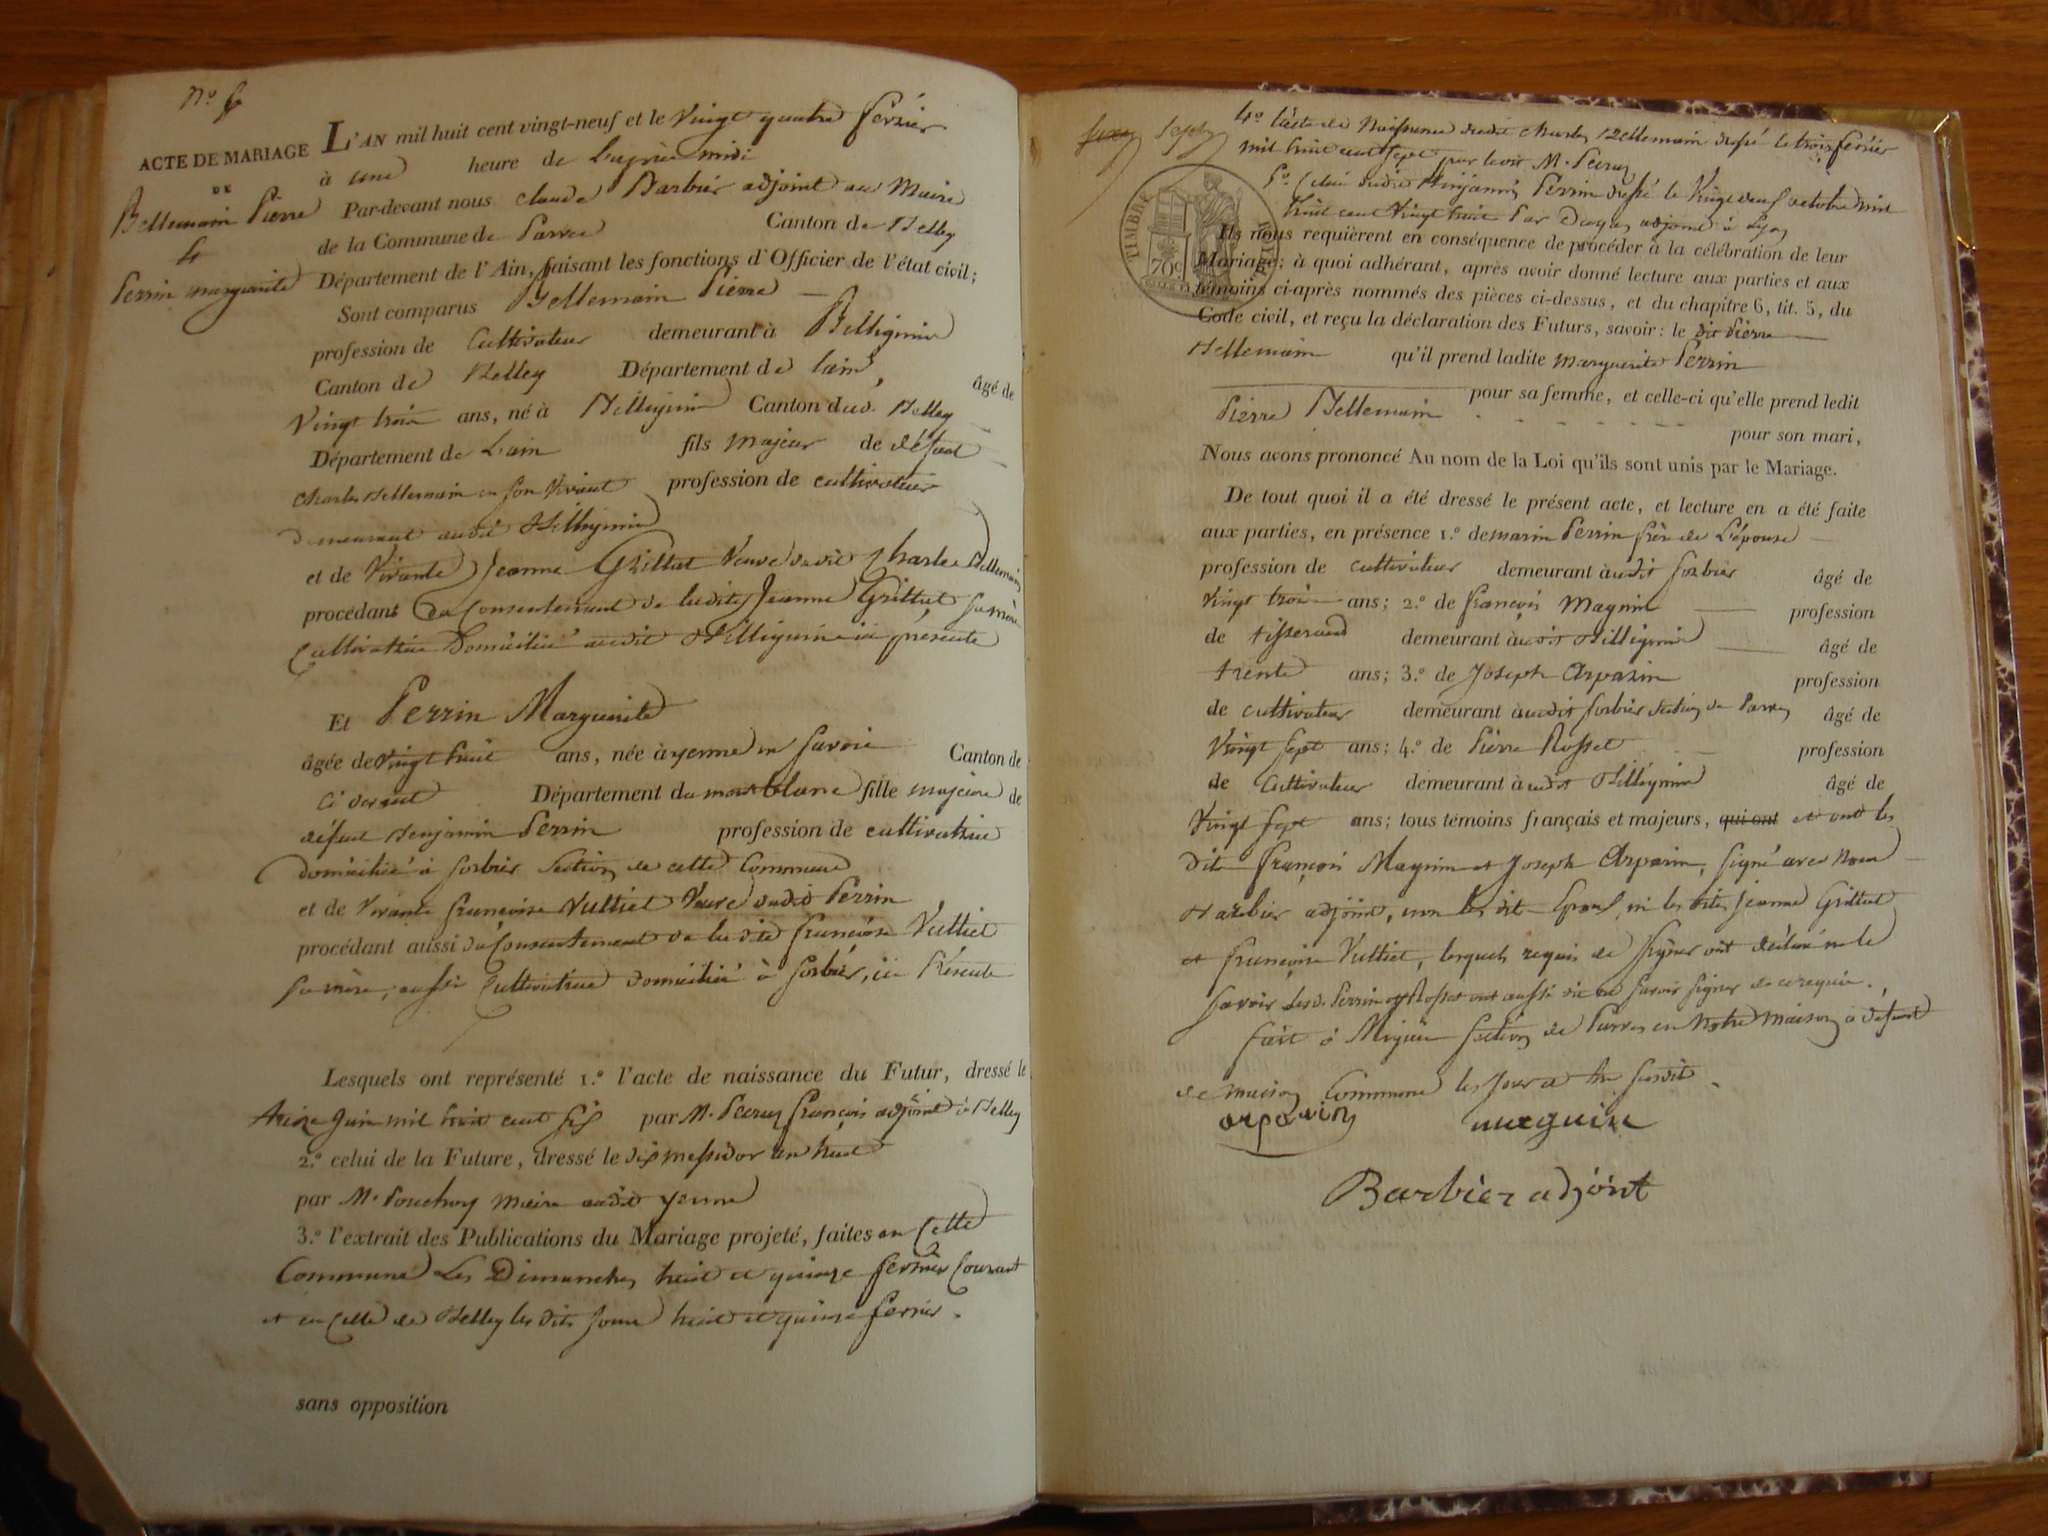 N.º 6
ACTE DE MARIAGE
DE
Bellemain Pierre
&
Perrin marguerite
L'AN mil huit cent vingt-neuf et le Vingt quatre fevrier
à une heure de l'après midi
Par-devant nous claude Barbier adjoint au Maire
de la Commune de Parves Canton de Belley
Département de l'Ain, faisant les fonctions d'Officier de l'état civil;
Sont comparus Bellemain Pierre
profession de Cultivateur demeurant à Billignin
Canton de Belley Département de lain, âgé de
Vingt trois ans, né à Billignin Canton dud. Belley
Département de L'ain fils majeur de défunt
Charles Bellemain en son vivant profession de cultivateur
demeurant audit Billignin
et de Vivante Jeanne Grillat Veuve dudit Charles Bellemain
procédant du Consentement de ladite Jeanne Grillat sa mère
Cultivatrice Domiciliée audit Billignin ici présente
Et Perrin Marguerite
âgée de vingt huit ans, née à yenne en Savoie Canton de
ci devant Département du mont blanc fille majeure de
défunt Benjamin Perrin profession de cultivatrice
domiciliée à Sorbier Section de cette Commune
et de Vivante françoise Vulliet Veuve dudit Perrin
procédant aussi du Consentement de la dite françoise Vulliet
sa mère, aussi Cultivatrice domiciliée à Sorbier, ici Présente
Lesquels ont représenté 1.º l'acte de naissance du Futur, dressé le
treize Juin mil huit cent six par M. françois adjoint à Belley
2.º celui de la Future, dressé le dix messidor an huit
par M. maire audit yenne
3.º l'extrait des Publications du Mariage projeté, faites en Cette
Commune Les Dimanches huit et quinze fevrier Courant
et en Celle de Belley les dits jours huit et quinze fevrier.
sans opposition
4.º l'acte de Naissance dudit charles Bellemain dressé le trois février
mil huit cent sept par M.
5.º Celui dudit Binjamin Perrin dressé le Vingt deux octobre mil
huit cent Vingt huit Par adjoint à Lyon
TIMBRE ROYAL
70c
Ils nous requièrent en conséquence de procéder à la célébration de leur
Mariage; à quoi adhérant, après avoir donné lecture aux parties et aux
témoins ci-après nommés des pièces ci-dessus, et du chapitre 6, tit. 5, du
Code civil, et reçu la déclaration des Futurs, savoir: le dit Pierre
Bellemain qu'il prend ladite marguerite Perrin
pour sa femme, et celle-ci qu'elle prend ledit
Pierre Bellemain
pour son mari,
Nous avons prononcé Au nom de la Loi qu'ils sont unis par le Mariage.
De tout quoi il a été dressé le présent acte, et lecture en a été faite
aux parties, en présence 1.º de marin Perrin frère de L'épouse
profession de cultivateur demeurant audit Sorbier âgé de
Vingt trois ans; 2.º de françois Magnin profession
de tisserand demeurant audit Billignin âgé de
trente ans; 3.º de Joseph Arpasin profession
de cultivateur demeurant audit Sorbier Section de Parves âgé de
Vingt sept ans; 4.º de Pierre Rosset profession
de Cultivateur demeurant audit Billignin âgé de
Vingt sept ans; tous témoins français et majeurs, qui ont et ont les
dits françois Magnin et Joseph Arpasin, signé avec Nous
Barbier adjoint, non les dits Epoux, ni les dites Jeanne Grillat
et françoise Vulliet, lesquels requis de signer ont déclaré ne le
Savoir Lesd. Perrin et Rosset ont aussi dit ne savoir signer de ce requis.
fait à Section de Parves en Notre maison à défaut
de maison Commune les jour et an susdits.
arpasin magnin
Barbier adjoint